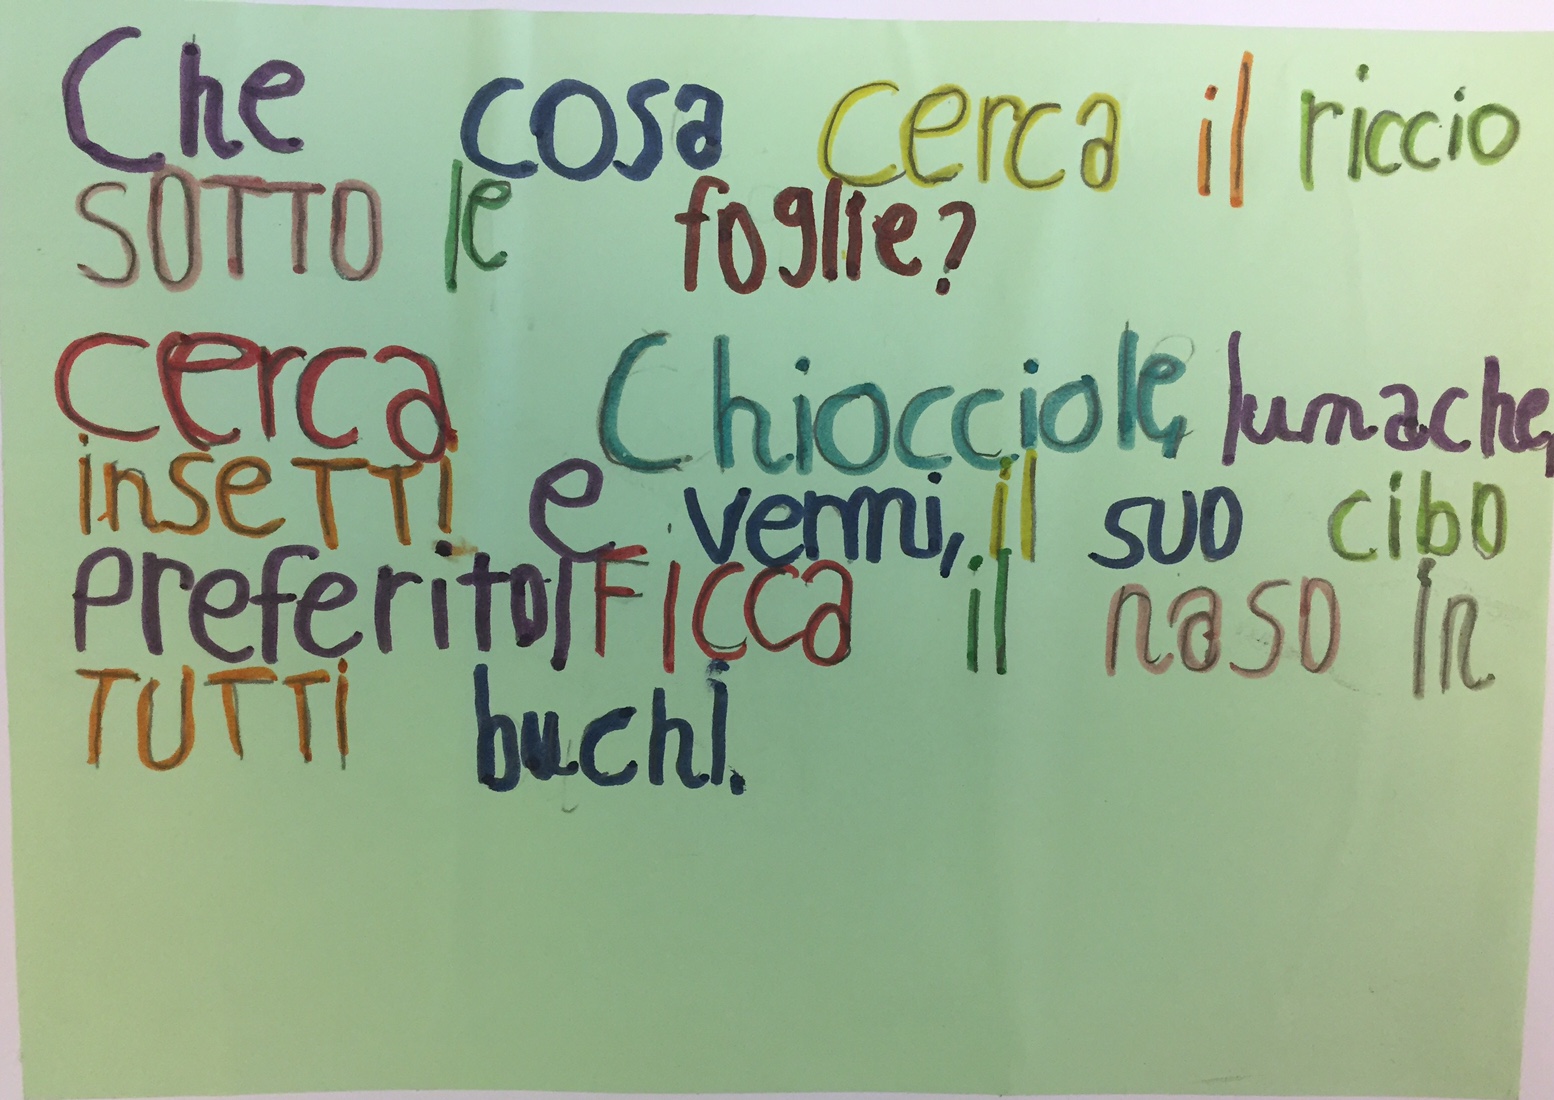 Che cosa cerca il riccio
SOTTO le foglie?
cerca Chiocciole, lumache,
inseTTi e vermi, il suo cibo
preferito, Ficca il naso in
TUTTi buchi.